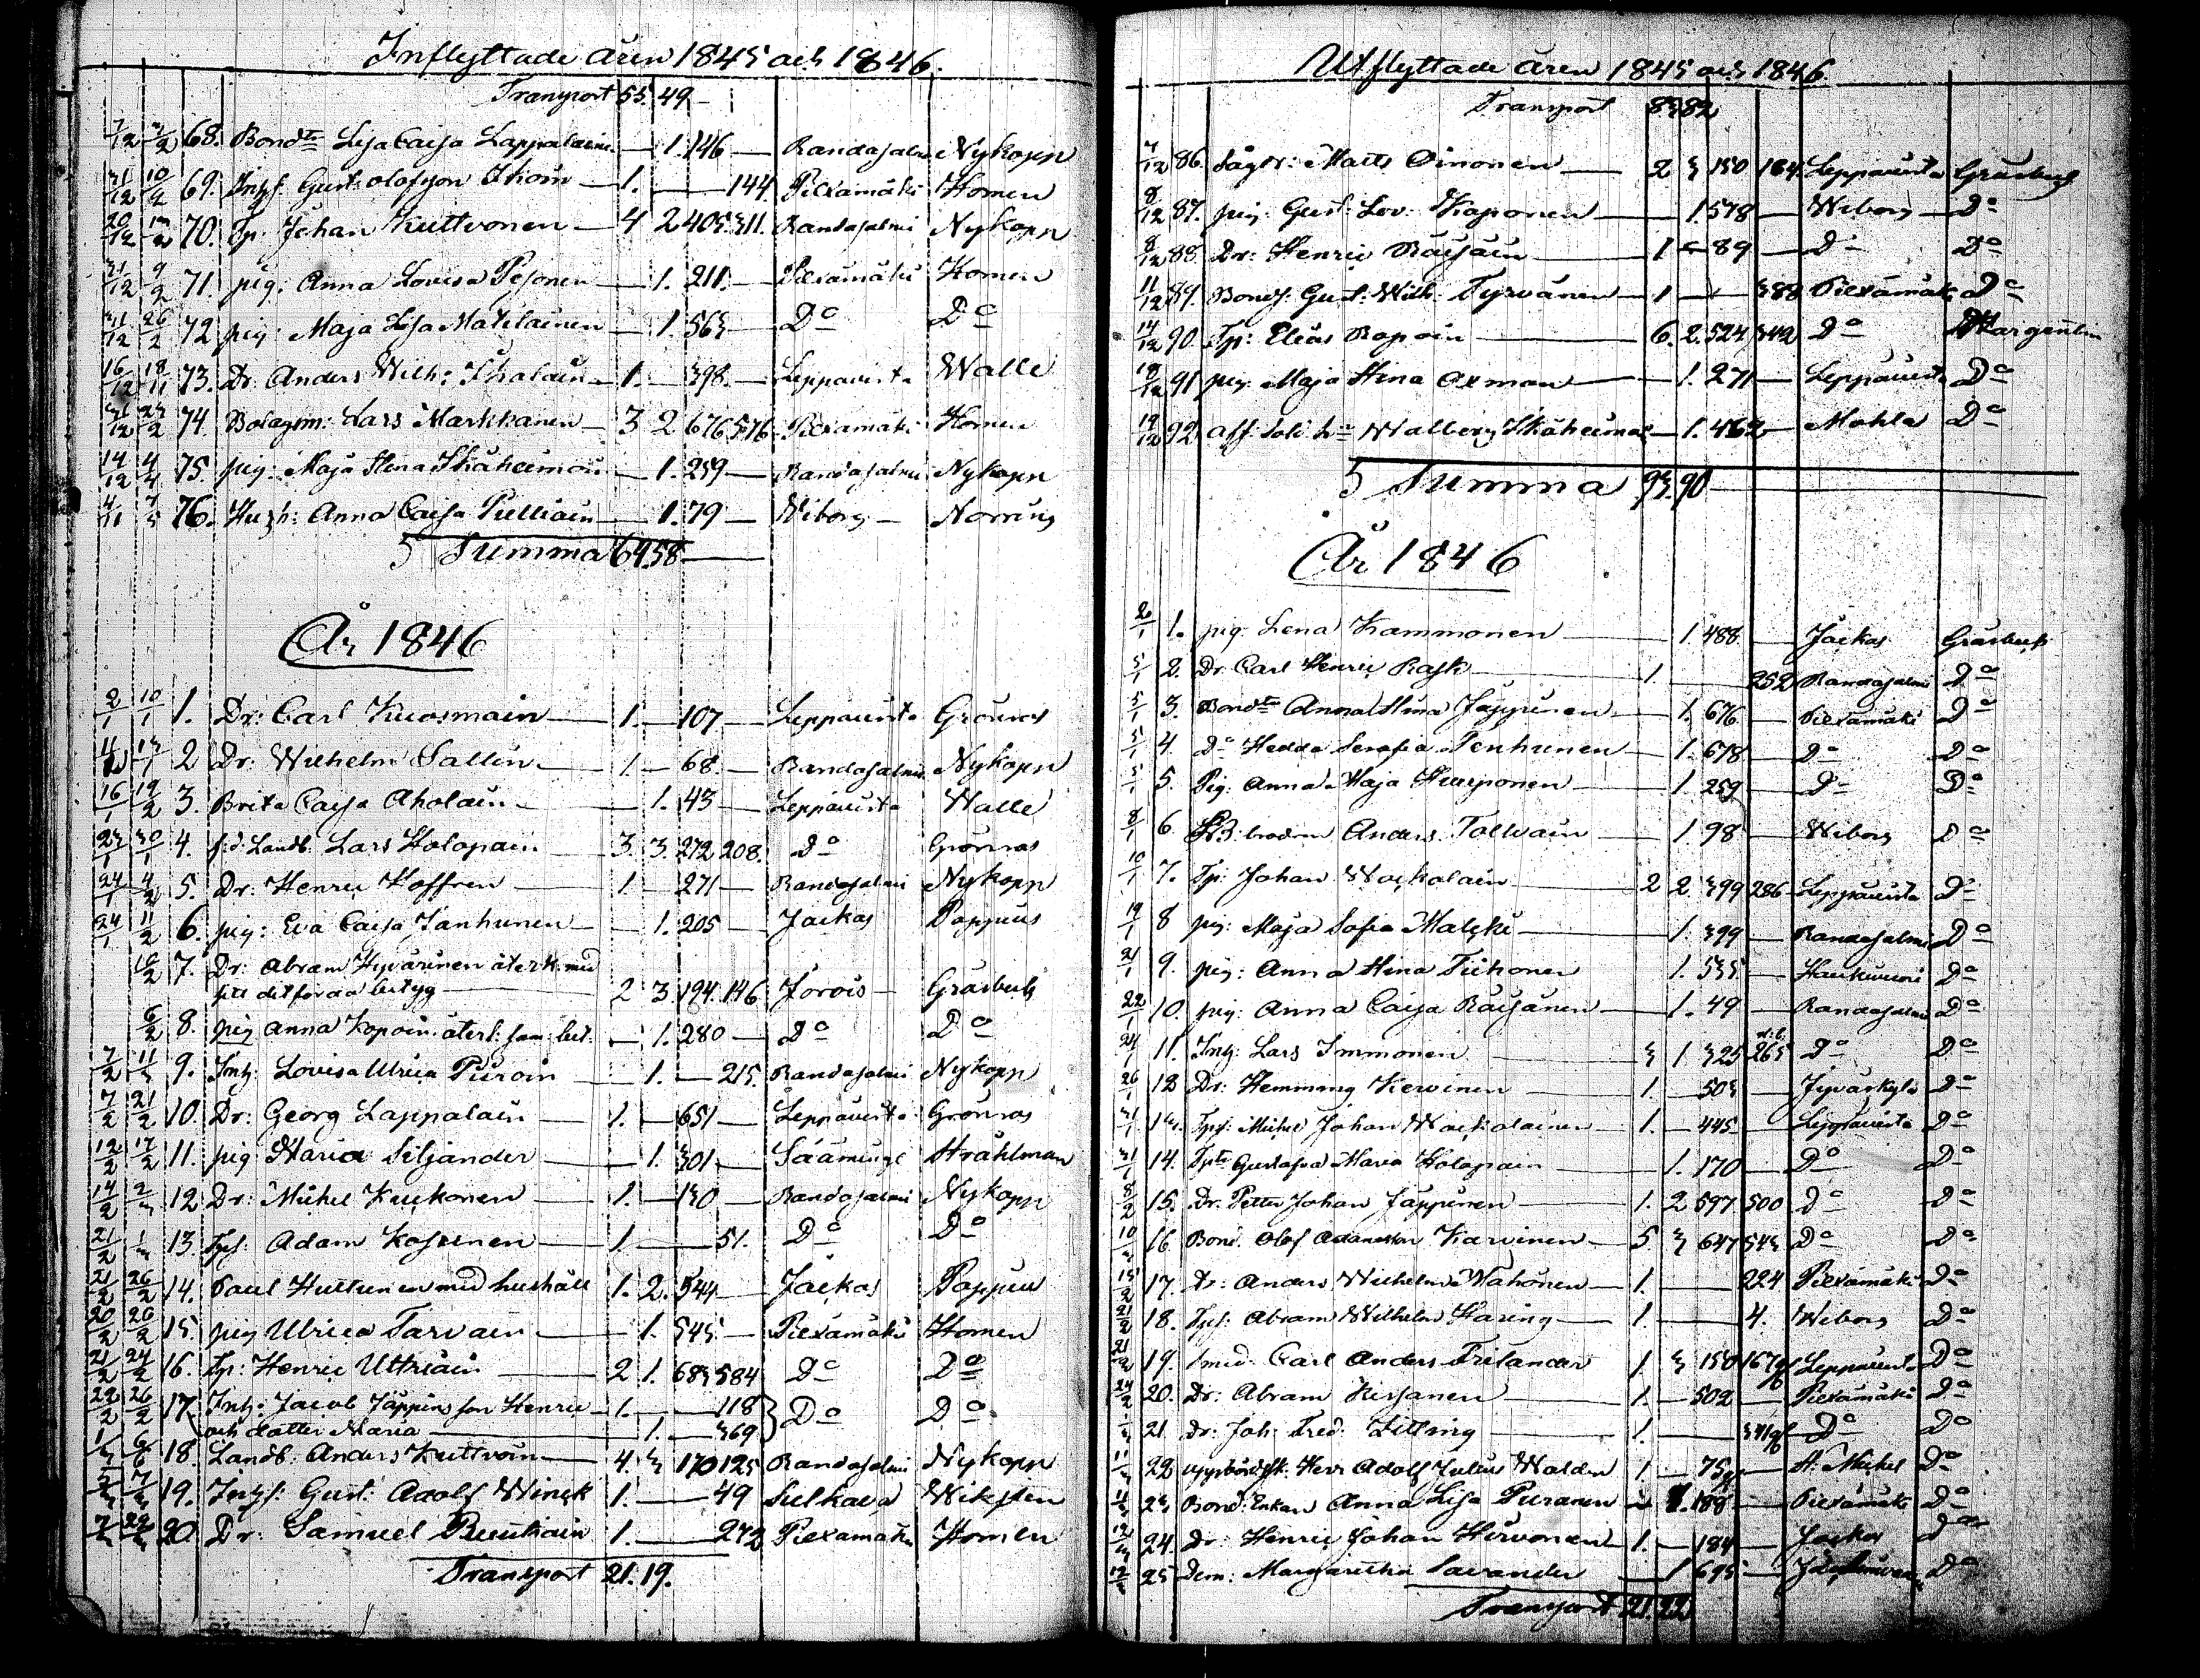 Inflyttade åren 1845 och 1846.
Transport 55. 49
7/12 68. Bondd:r Lisa Caisa Lappalainen — 1. 146 — Randasalmi Nykopp
31/12 10/2 69. Inhys. Gust: Olofsson Thoin — 1. — 144. Piexämäki Homen
20/12 70. Tp. Johan Kuttvonen — 4 2 405 311. Randasalmi Nykopp
31/12 9/2 71. pig. Anna Lovisa Pesonen — 1. 211. Piexämäki Homen
31/12 26/2 72 pig: Maja Lisa Matilainen — 1. 563 — D:o D:o
16/12 18/11 73. Dr. Anders Wilh: Ikalain — 1. — 398. — Leppävirta Walle
31/12 23/2 74. Bolagsm: Lars Markkanen — 3 2 676 576 Piexämäki Homen
14/12 4/4 75. pig: Maja Stina Ikäheimoin — 1. 259 — Randasalmi Nykopp
4/11 7/5 76. Hush: Anna Caisa Pulliain — 1. 79 — Wiborg — Norring
Summa 64. 58.
År 1846
2/1 10/1 1. Dr: Carl Kuosmain — 1. — 107 — Leppävirta Grönros
4/1 13/1 2 Dr: Wilhelm Sallin — 1. — 68. — Randasalmi Nykopp
16/1 19/2 3. Brita Caisa Aholain — 1. 43 — Leppävirta Walle
23/1 30/1 4. f.d. Landb. Lars Holopain — 3. 3. 272 208. D:o Grönros
24/1 4/2 5. Dr. Henric Hoffren — 1. — 271 — Randasalmi Nykopp
24/1 11/2 6. pig: Eva Caisa Janhunen — 1. 205 — Jockas Poppius
12/2 7. Dr: Abram Hyvärinen återk. med
sitt ditförda betyg — 2 3. 194. 146 Jorois — Gråsbeck
6/2 8. pig Anna Kopoin återk: sam: bet: — 1. 280 — D:o D:o
7/2 11/3 9. Inh: Lovisa Ulrica Puroin — 1. — 215. Randasalmi Nykopp
7/2 21/2 10. Dr: Georg Lappalain — 1. — 651 — Leppävirta Grönros
12/2 17/2 11. pig Maria Siljander — 1. 301 — Sääminge Stråhlman
14/2 2/3 12 Dr: Michel Kuikonen — 1. — 130 — Randasalmi Nykopp
21/2 1/3 13. Tps: Adam Kosunen — 1. — 51. D:o D:o
21/2 26/2 14. Paul Huttunen med hushåll 1. 2. 544 — Jockas Poppius
20/2 26/2 15 pig Ulrica Tarvain — 1. 545. — Piexämäki Homen
21/2 24/2 16. Tp: Henric Uttriain — 2. 1. 683 584 D:o D:o
22/2 26/2 17. Inh: Jacob Jäppin son Henric — 1. — 118 D:o D:o
och dotter Maria — 1. — 369
1/3 6/6 18. Landb. Anders Kuttvoin — 4. 3 170 125 Randasalmi Nykopp
7/3 19. Inhs: Gust: Adolf Winck 1. — 49 Sulkava Wikstén
7/3 22/3 20. Dr: Samuel Puukain 1. — 272 Piexämäki Homen
Transport 21. 19.
Utflyttade åren 1845 och 1846.
Transport 83 82
7/12 86. Sågdr: Matts Oinonen — 2 3 150 164. Leppävirta Gråsbeck
8/12 87. pig: Gust: Lov: Kaponen — 1 578 — Wiborg — D:o
8/12 88. Dr: Henric Räisäin — 1 — 89 — D:o D:o
11/12 89. Bonds. Gust: Wilh: Tyrvänen — 1 — 388 Piexämäki D:o
14/12 90. Tp: Elias Ropoin — 6. 2. 524 342 D:o D:o
18/12 91 pig. Maja Stina Axman — 1. 271 — Leppävirta D:o
19/12 92 Walborg Ikäheimoin — 1. 462 — Mohla D:o
Summa 93. 90
År 1846
2/1 1. pig. Lena Kammonen — 1. 488 — Jockas Gråsbeck
5/1 2. Dr Carl Henric Rask — 1. 252 Randasalmi D:o
5/1 3. Bondd:r Anna Stina Jäppinen — 1. 676 — Piexämäki D:o
5/1 4. D:o Hedda Serafia Tenhunen — 1. 678 — D:o D:o
5/1 5. Pig: Anna Maja Kurponen — 1. 259 — D:o D:o
8/1 6. Anders Tolvain — 1. 98 — Wiborg D:o
10/1 7. Tp: Johan Wockolain — 2 2 399 286 Leppävirta D:o
19/1 8 pig: Maja Sofia Malski — 1. 399 — Randasalmi D:o
21/1 9. pig: Anna Stina Tiihonen 1. 535 — Haukivuori D:o
22/1 10. pig: Anna Caisa Räisänen — 1. 49 — Randasalmi D:o
24/1 11. Inh: Lars Immonen — 3 1 325 265 D:o D:o
26/1 12 Dr: Hemming Kervinen 1. — 503 — Jyväskylä D:o
31/1 13. Tps: Michel Johan Wockolainen — 1. — 445 — Leppävirta D:o
31/1 14. Tpd:r Gustafva Maria Holopain — 1. 170 — D:o D:o
8/2 15. Dr. Petter Johan Jäppinen — 1. 2 597 500 D:o D:o
10/2 16. Bond. Olof Adamsson Karvinen — 5. 3 647 543 D:o D:o
15/2 17. Dr: Anders Wilhelm Wahonen — 1. — 224 Piexämäki D:o
21/2 18. Tps: Abram Wilhelm Haring — 1. — 4. Wiborg D:o
21/2 19. Smed. Carl Anders Frilander 1. 3 150 167 Leppävirta D:o
24/2 20. Dr: Abram Kirjanen — 1. — 502 — Piexämäki D:o
21. Dr: Joh: Fred: Zitting — 1. — D:o D:o
11/3 22 Herr Adolf Julius Waldén 1. — 75 — St. Michel D:o
11/3 23 Bond: Enkan Anna Lisa Puranen — 1. 188 — Piexämäki D:o
12/3 24. Dr: Henric Johan Hirvonen — 1. — 184 — Jockas D:o
12/3 25 Dem: Margaretha Savander — 1 695 — D:o
Transport 21 22